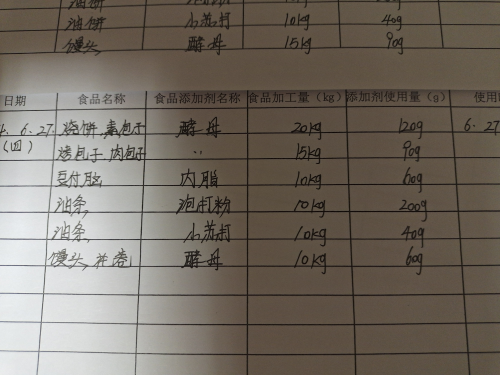 油饼
油饼 小苏打 10kg 40g
馒头 酵母 15kg 90g
日期 食品名称 食品添加剂名称 食品加工量（kg） 添加剂使用量（g） 使用
6.27 烧饼、素包子 酵母 20kg 120g 6.27
(四) 包子、肉包子 〃 15kg 90g
豆付脑 内脂 10kg 60g
油条 泡打粉 10kg 200g
油条 小苏打 10kg 40g
馒头、花卷 酵母 10kg 60g